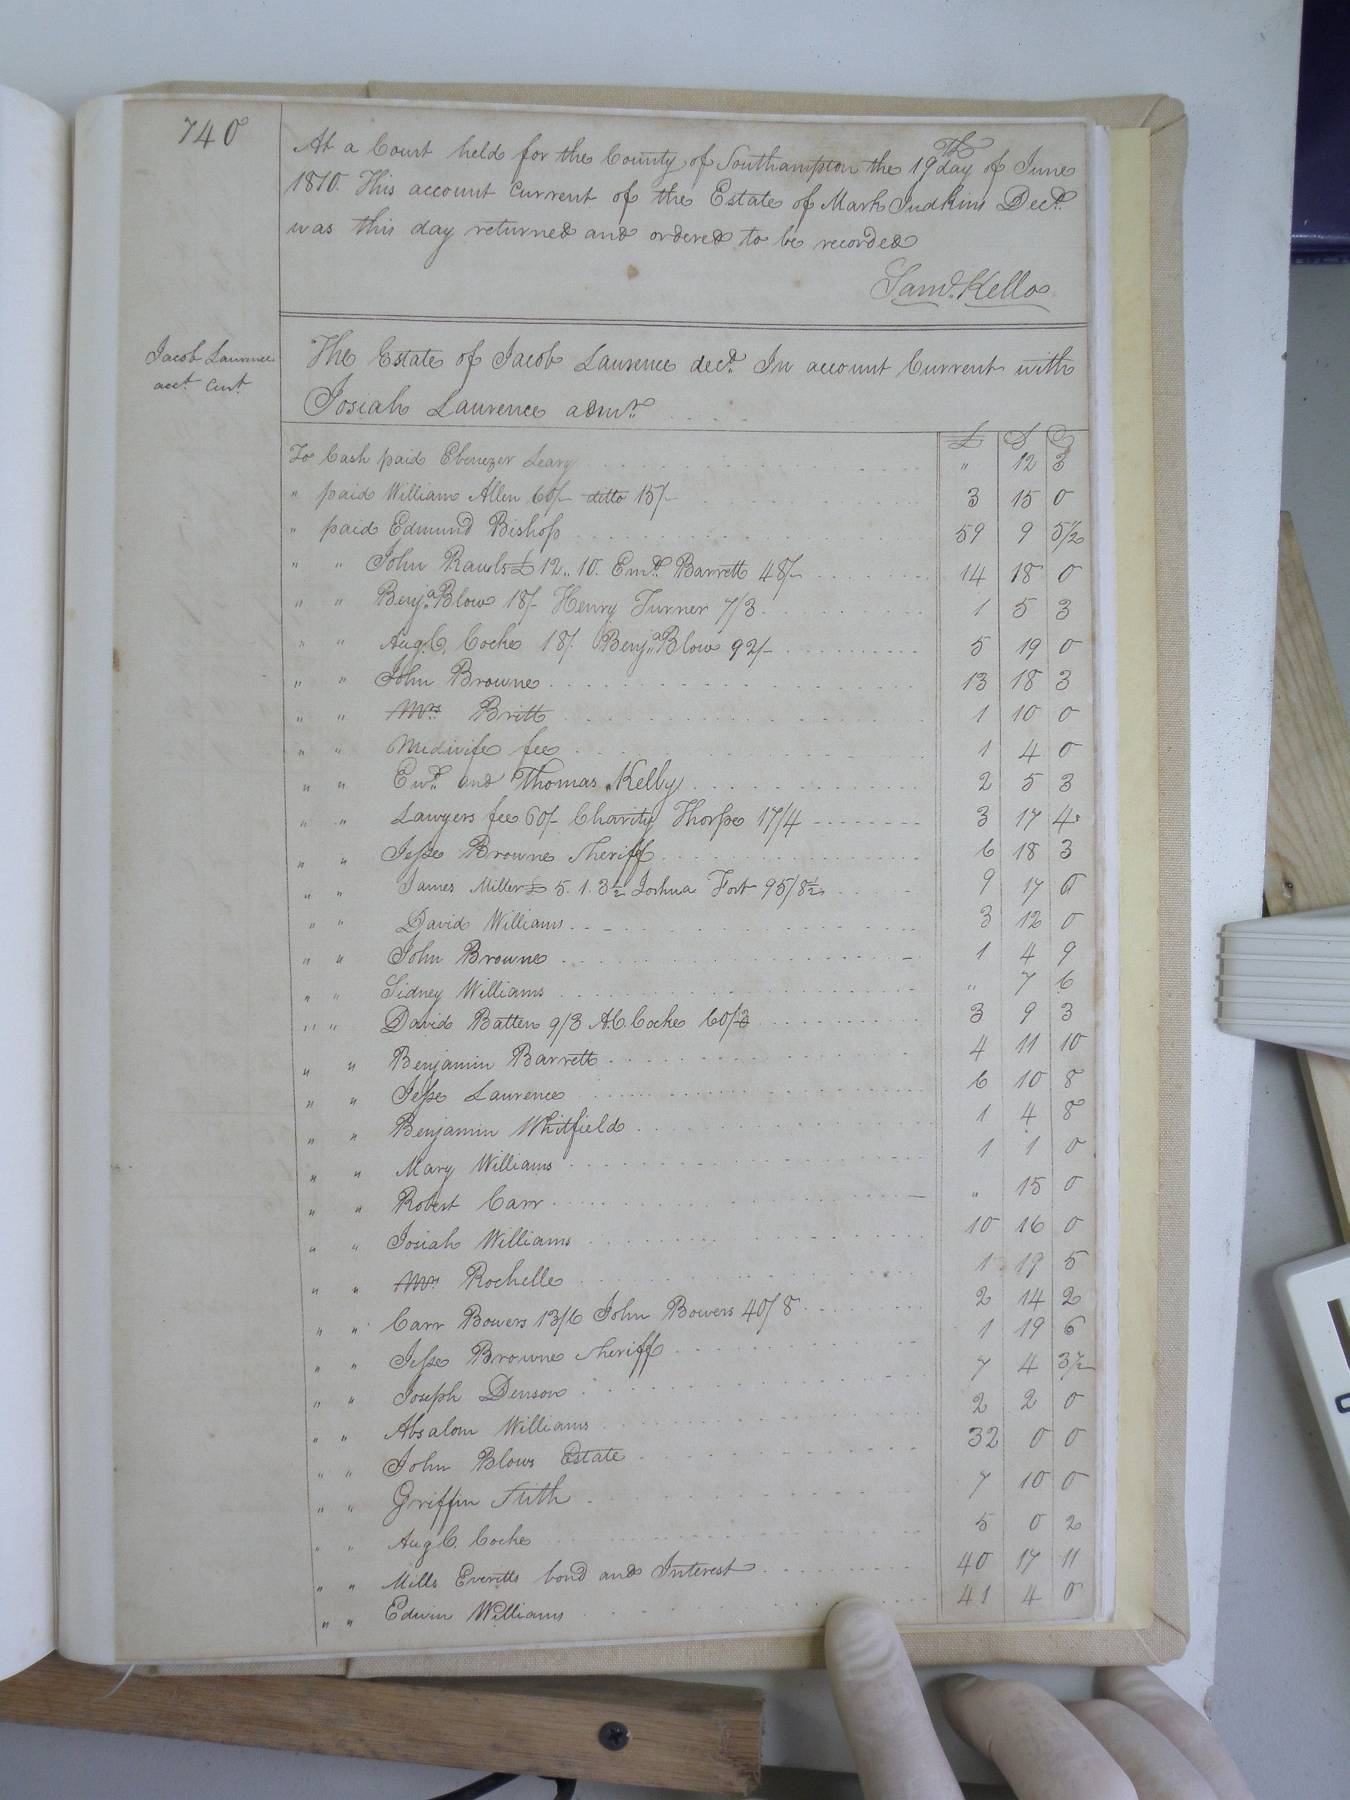 740
At a Court held for the County of Southampton the 19th day of June
1810. This account current of the Estate of Mark Judkins Decd.
was this day returned and ordered to be recorded
Saml. Kello
Jacob Laurence
acct. Curt.
The Estate of Jacob Laurence decd. In account Current with
Josiah Laurence admr.
£ S D
To Cash paid Ebenezer Leary " 12 3
" paid William Allen 60/- ditto 15/- 3 15 0
" paid Edmund Bishop 59 9 5 1/2
" " John Rawls £ 12.. 10. Emd. Barrett 48/- 14 18 0
" " Benja. Blow 18/- Henry Turner 7/3 1 5 3
" " Aug. C. Cocke 18/. Benja. Blow 92/- 5 19 0
" " John Browne 13 18 3
" " Mrs Britt 1 10 0
" " Midwife fee 1 4 0
" " Ewd. and Thomas Kelly 2 5 3
" " Lawyers fee 60/- Charity Thorpe 17/4 3 17 4
" " Jesse Browne Sheriff 6 18 3
" " James Miller £ 5. 1. 3 1/2 Joshua Fort 95/8 1/2 9 17 0
" " David Williams 3 12 0
" " John Browne 1 4 9
" " Sidney Williams " 7 6
" " David Batten 9/3 A. C. Cocke 60/ 3 9 3
" " Benjamin Barrett 4 11 10
" " Jesse Laurence 6 10 8
" " Benjamin Whitfield 1 4 8
" " Mary Williams 1 1 0
" " Robert Carr " 15 0
" " Josiah Williams 10 16 0
" " Mr Rochelle 1 19 5
" " Carr Bowers 13/6 John Bowers 40/8 2 14 2
" " Jesse Browne Sheriff 1 19 6
" " Joseph Denson 7 4 3 1/2
" " Absalom Williams 2 2 0
" " John Blows Estate 32 0 0
" " Griffin Stith 7 10 0
" " Aug C. Cocke 5 0 2
" " Mills Everitts bond and Interest 40 17 11
" " Edwin Williams 41 4 0